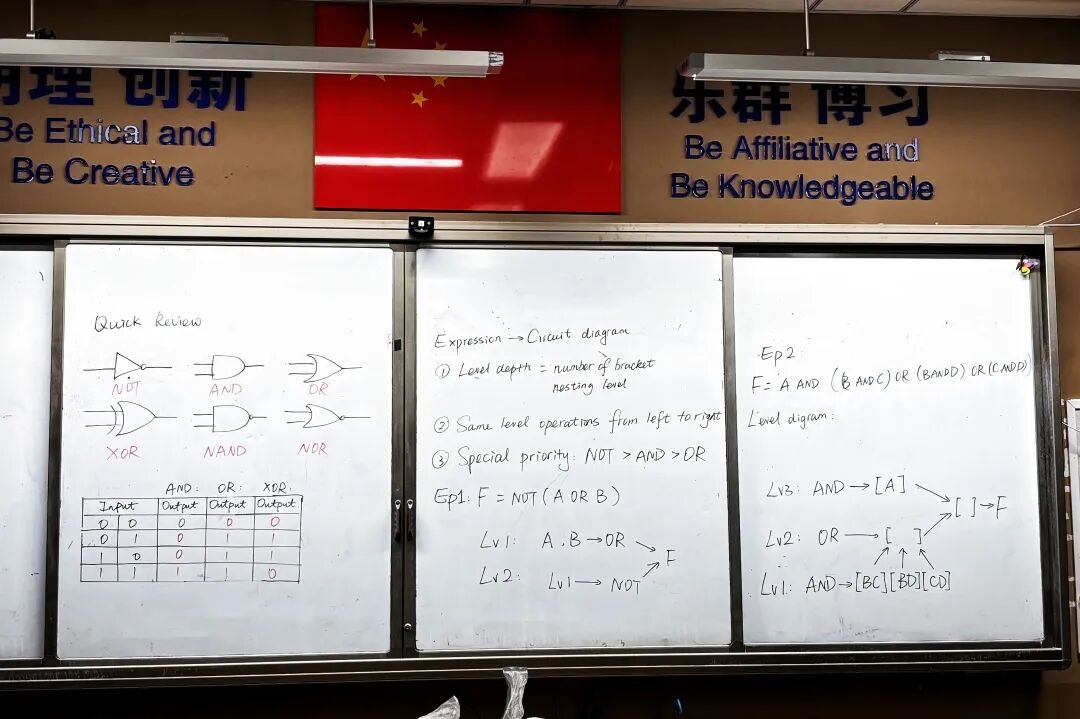 理 创新
Be Ethical and
Be Creative
乐群 博习
Be Affiliative and
Be Knowledgeable
Quick Review
NOT AND OR
XOR NAND NOR
AND: OR: XOR:
Input Output Output Output
0 0 0 0 0
0 1 0 1 1
1 0 0 1 1
1 1 1 1 0
Expression → Circuit diagram
① Level depth = number of bracket
nesting level
② Same level operations from left to right
③ Special priority: NOT > AND > OR
Ep1: F = NOT (A OR B)
Lv1: A, B → OR
F
Lv2: Lv1 → NOT
Ep2:
F = A AND (B AND C) OR (B AND D) OR (C AND D)
Level digram:
Lv3: AND → [A]
[ ] → F
Lv2: OR → [ ]
Lv1: AND → [BC] [BD] [CD]